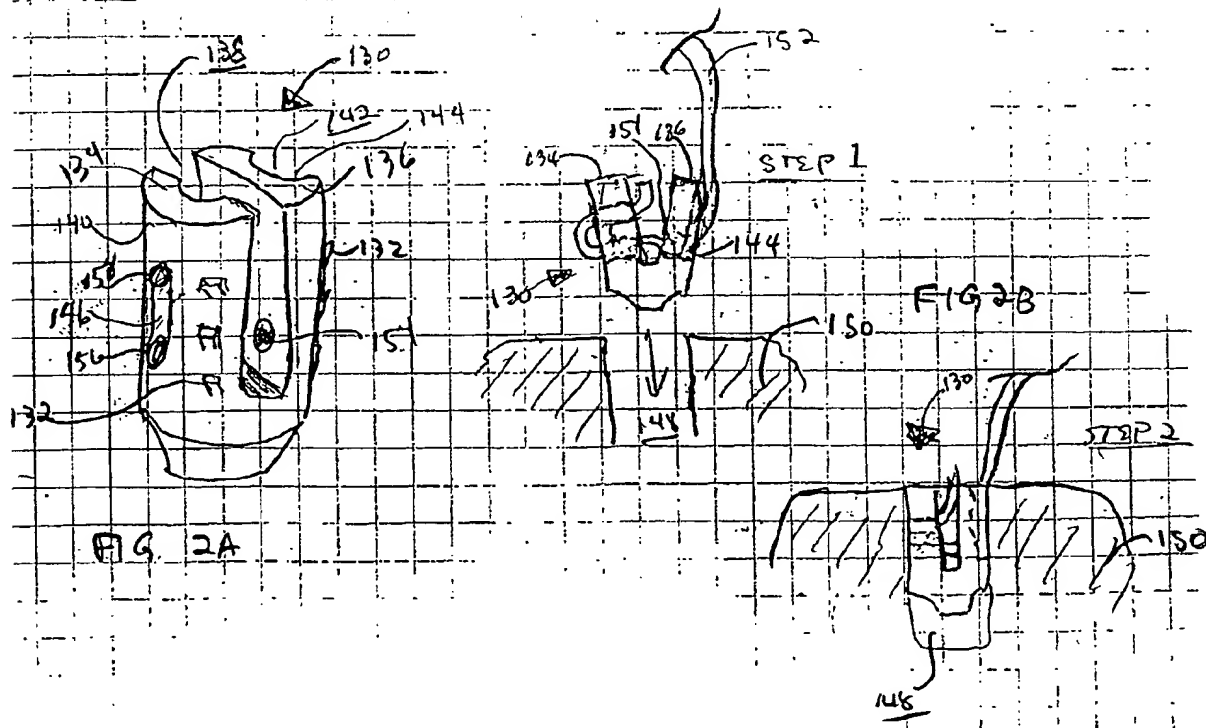 138
130
142
144
134
136
140
132
158
146
156
151
132
FIG. 2A
152
151
136
STEP 1
134
144
130
150
FIG 2B
148
130
STEP 2
150
148